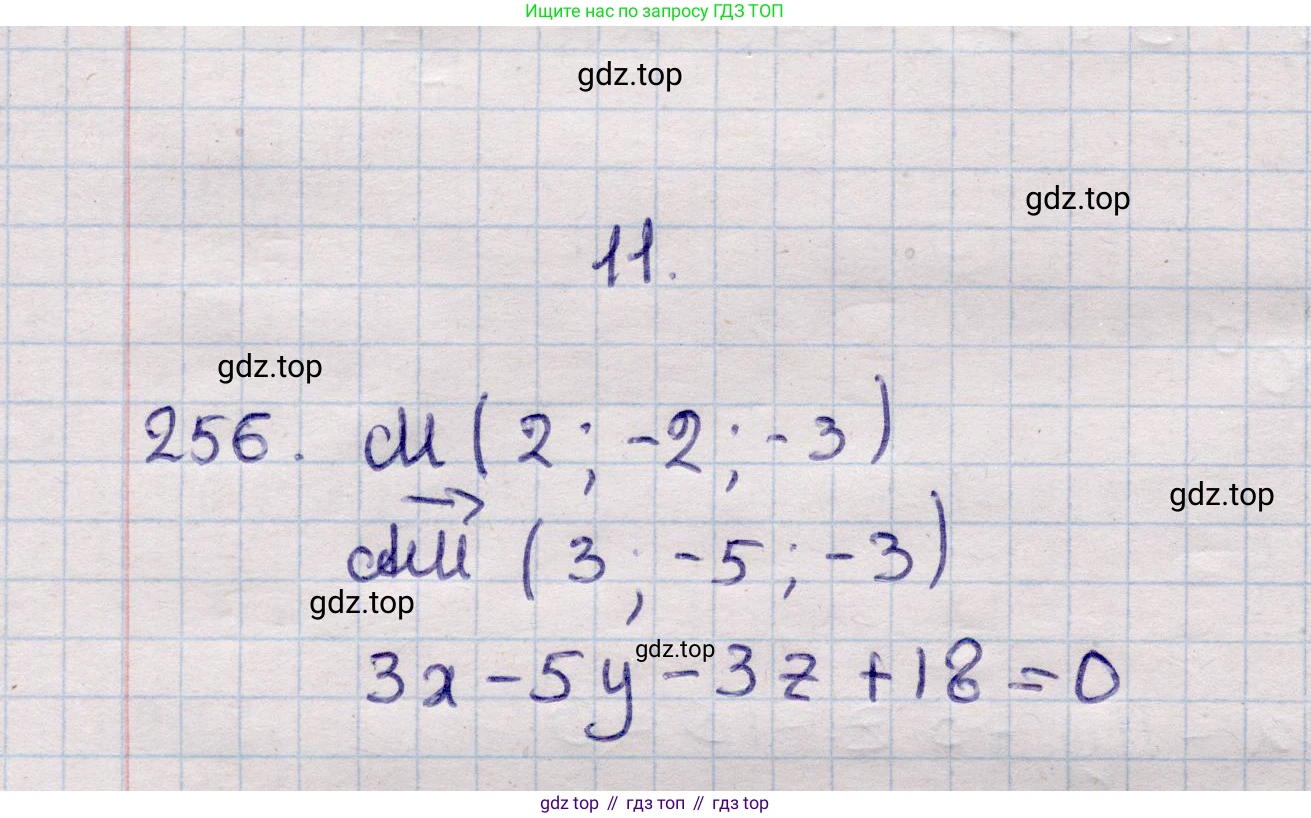 Ищите нас по запросу ГДЗ ТОП
gdz.top
gdz.top
11.
gdz.top
256. M (2; -2; -3)
gdz.top
MM (3; -5; -3)
gdz.top
gdz.top
3x - 5y - 3z + 18 = 0
gdz top // гдз топ // gdz top